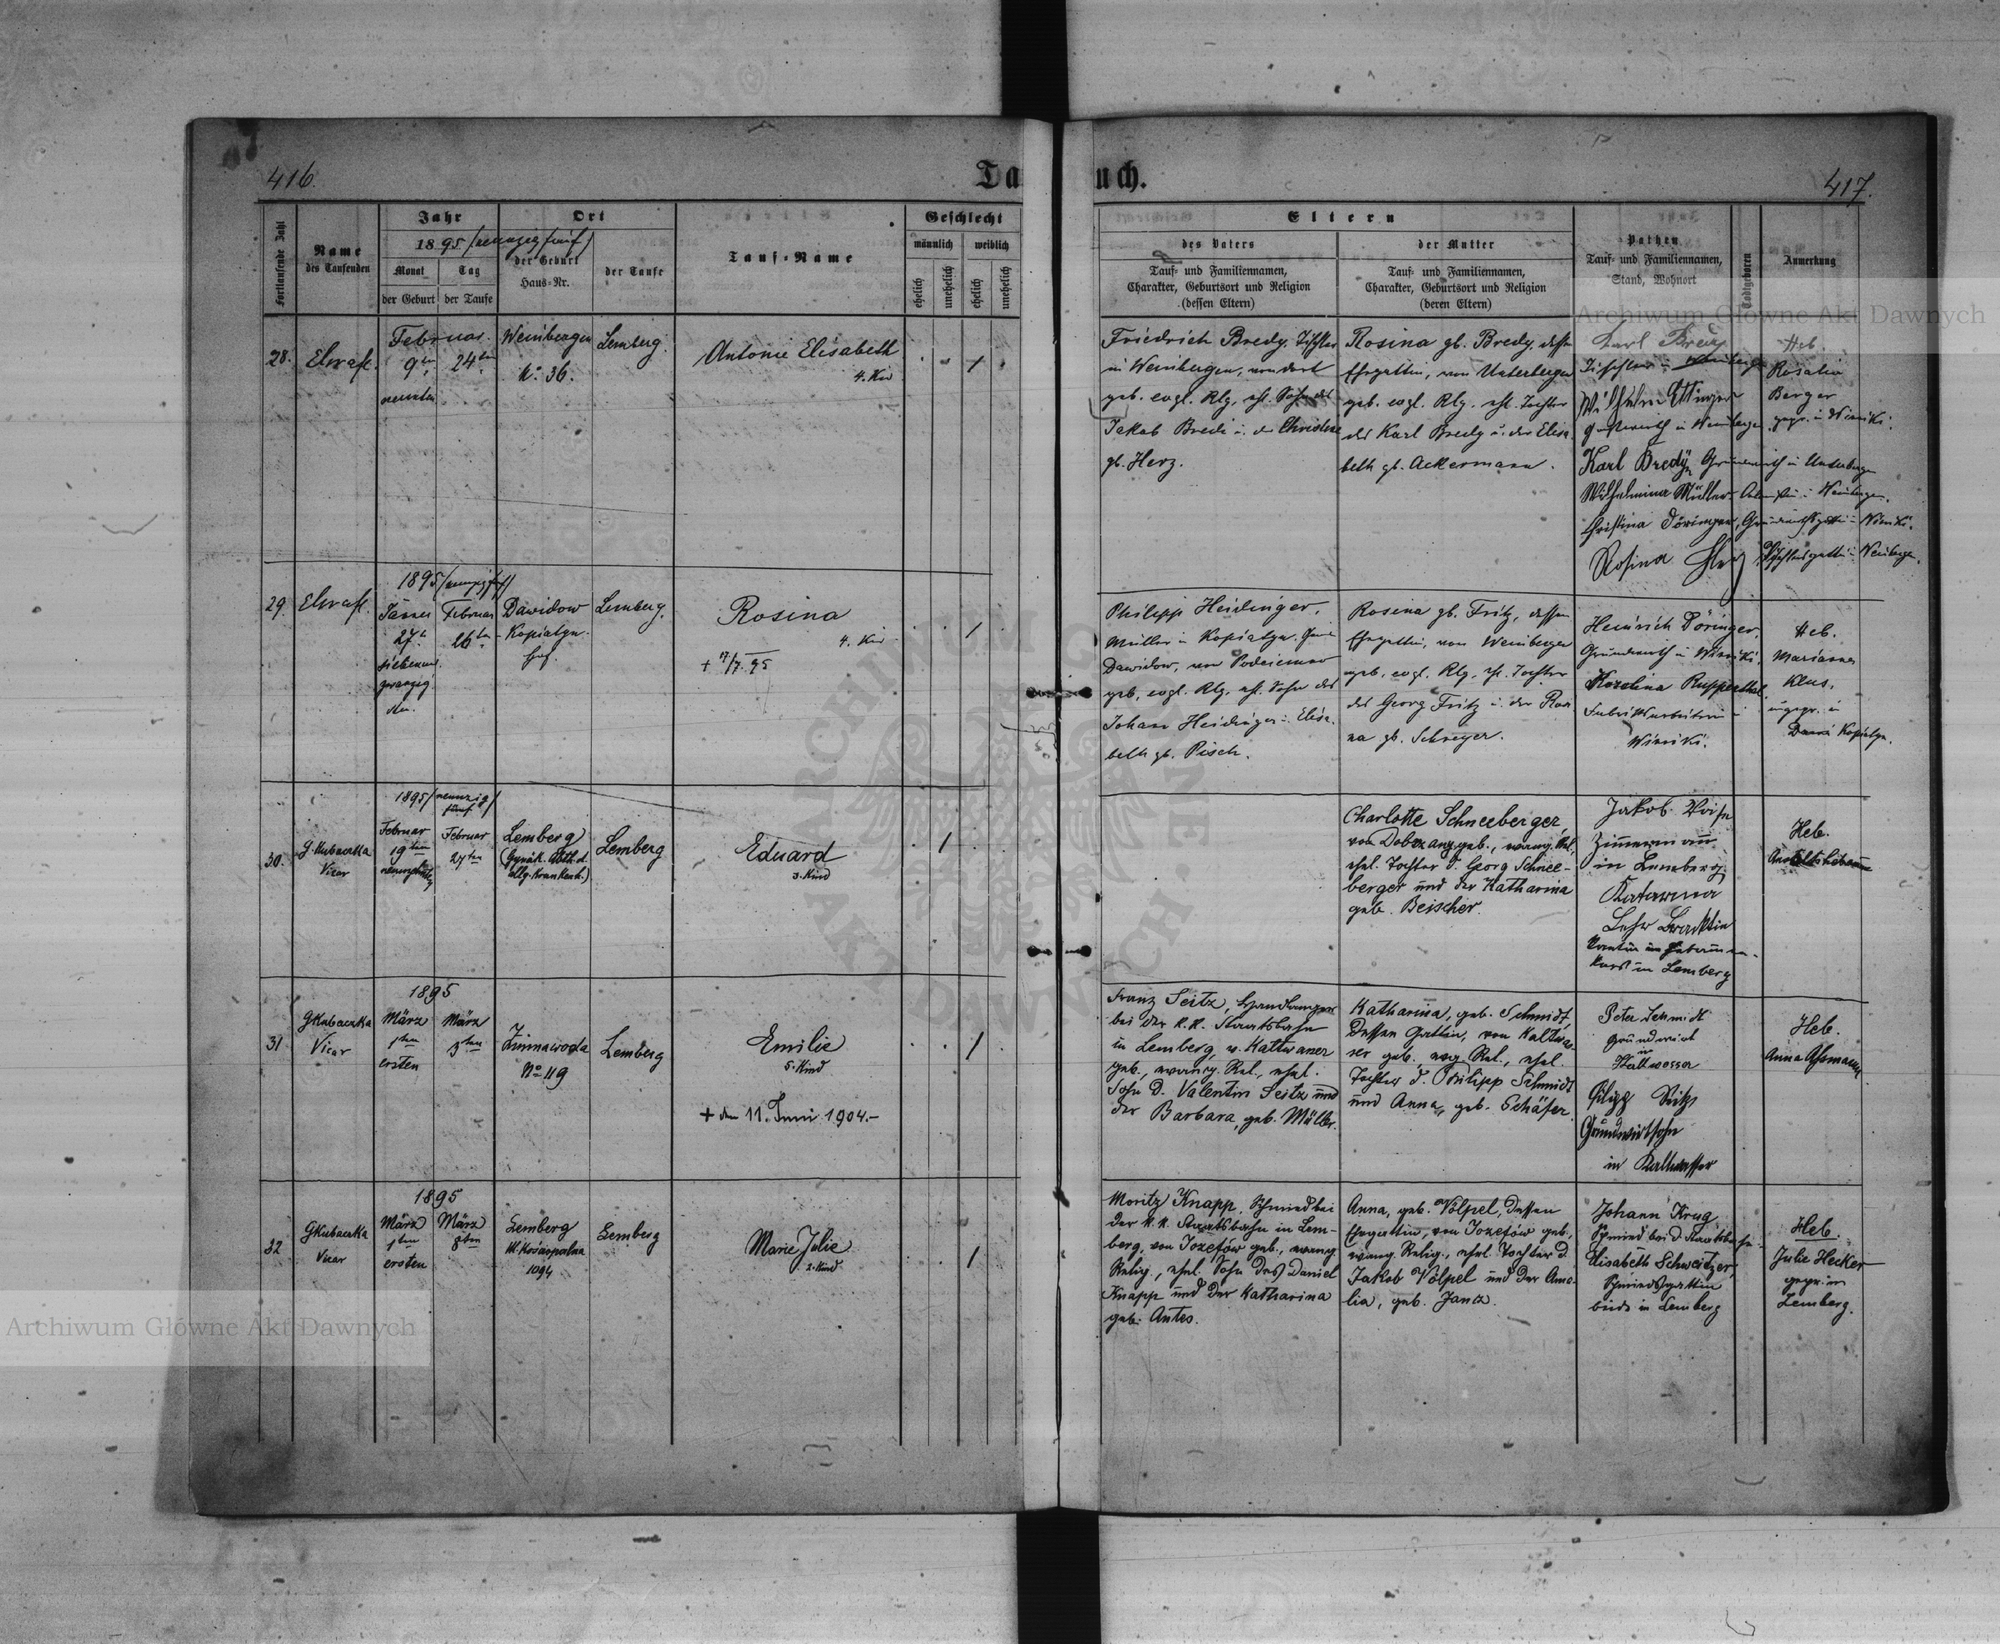 416.
Taufbuch.
417.
Fortlaufende Zahl
Name
des Taufenden
Jahr
1895 /neunzig fünf/
Monat
Tag
der Geburt
der Taufe
Ort
der Geburt
Haus-Nr.
der Taufe
Tauf-Name
Geschlecht
männlich
weiblich
ehelich
unehelich
ehelich
unehelich
Eltern
des Vaters
Tauf- und Familiennamen,
Charakter, Geburtsort und Religion
(dessen Eltern)
der Mutter
Tauf- und Familiennamen,
Charakter, Geburtsort und Religion
(deren Eltern)
Pathen
Tauf- und Familiennamen,
Stand, Wohnort
Todtgeboren
Anmerkung
28.
Februar
9ten
24ten
neunten
Weinbergen
No. 36.
Lemberg.
Antonie Elisabeth
4. Kind
Friedrich Bredy, Tischler
in Weinbergen, von dort
geb. evgl. Rlg., ehl. Sohn des
Jakob Bredi u. der Christine
gb. Herz.
Rosina gb. Bredy, dessen
Ehegattin, von Unterbergen
geb. evgl. Rlg. ehl. Tochter
des Karl Bredy u. der Elisa-
beth gb. Ackermann.
Karl Bredy
Tischler in
Wilhelm Ettinger
in Weinbergen
Karl Bredy, Grundwirth in Unterbergen
Wilhelmina Müller in Weinbergen.
Christina Döringer,
Rosina Weinbergen.
Heb.
Rosalia
Berger
gepr. in Winniki.
29.
1895 /neunzig fünf/
Jänner
27ten
sieben und
zwanzig
sten.
Februar
26ten
Dawidow
Kopiatyn
Lemberg.
Rosina
4. Kind
+ 7/7. 95
Philipp Heidinger,
Müller in Kopiatyn
Dawidow, von
geb. evgl. Rlg. ehl. Sohn des
Johann Heidinger u. Elisa-
beth gb. Pisch.
Rosina gb. Fritz, dessen
Ehegattin, von Weinbergen
geb. evgl. Rlg. ehl. Tochter
des Georg Fritz u. der Rosi
na gb. Schreyer.
Heinrich Döringer,
Grundwirth in Winniki.
Karolina Rupperthal
Fabriksarbeiterin in
Winniki.
Heb.
Marianna
Klus,
ungepr. in
Kopiatyn.
30.
G. Kubaczka
Vicar
1895 /neunzig
fünf/
Februar
19ten
neunzehnten
Februar
27ten
Lemberg
(Gynäk. Abth. d.
allg. Krankenh.)
Lemberg
Eduard
3. Kind
Charlotte Schneeberger
von geb., evang. Rel.,
ehel. Tochter d. Georg Schnee-
berger und der Katharina
geb. Beischer.
Jakob
Zimmermann
in Lemberg
Katarina
Lehr
in Lemberg
Heb.
31
GKubaczka
Vicar
1895
März
1ten
ersten
März
3ten
Zimnawoda
No 119
Lemberg
Emilie
5. Kind
+ den 11. Juni 1904.-
Franz Seitz, Handlanger
bei der k.k. Staatsbahn
in Lemberg, v. Kaltwasser
geb., evang. Rel., ehel.
Sohn d. Valentin Seitz und
der Barbara, geb. Müller.
Katharina, geb. Schmidt,
dessen Gattin, von Kaltwas-
ser geb., evg. Rel., ehel.
Tochter d. Philipp Schmidt
und Anna, geb. Schäfer.
Peter Schmidt
Grundwirt
in
Kaltwasser
Philipp Seitz
Grundwirtsohn
in Kaltwasser
Heb.
Anna Assmann
32
GKubaczka
Vicar
1895
März
1ten
ersten
März
8ten
Lemberg
1094
Lemberg
Marie Julie
2. Kind
Moritz Knapp, Schmied bei
der k.k. Staatsbahn in Lem-
berg, von Jozefów geb., evang.
Relig., ehel. Sohn des Daniel
Knapp und der Katharina
geb. Antes.
Anna, geb. Völpel, dessen
Ehegattin, von Jozefów geb.,
evang. Relig., ehel. Tochter d.
Jakob Völpel und der Ama-
lia, geb. Janca.
Johann Krug
Schmied bei d. Staatsbahn
Elisabeth Schweitzer,
Schmiedsgattin
beide in Lemberg
Heb.
Julie Hecker
gepr. in
Lemberg.
Archiwum Główne Akt Dawnych
Archiwum Główne Akt Dawnych